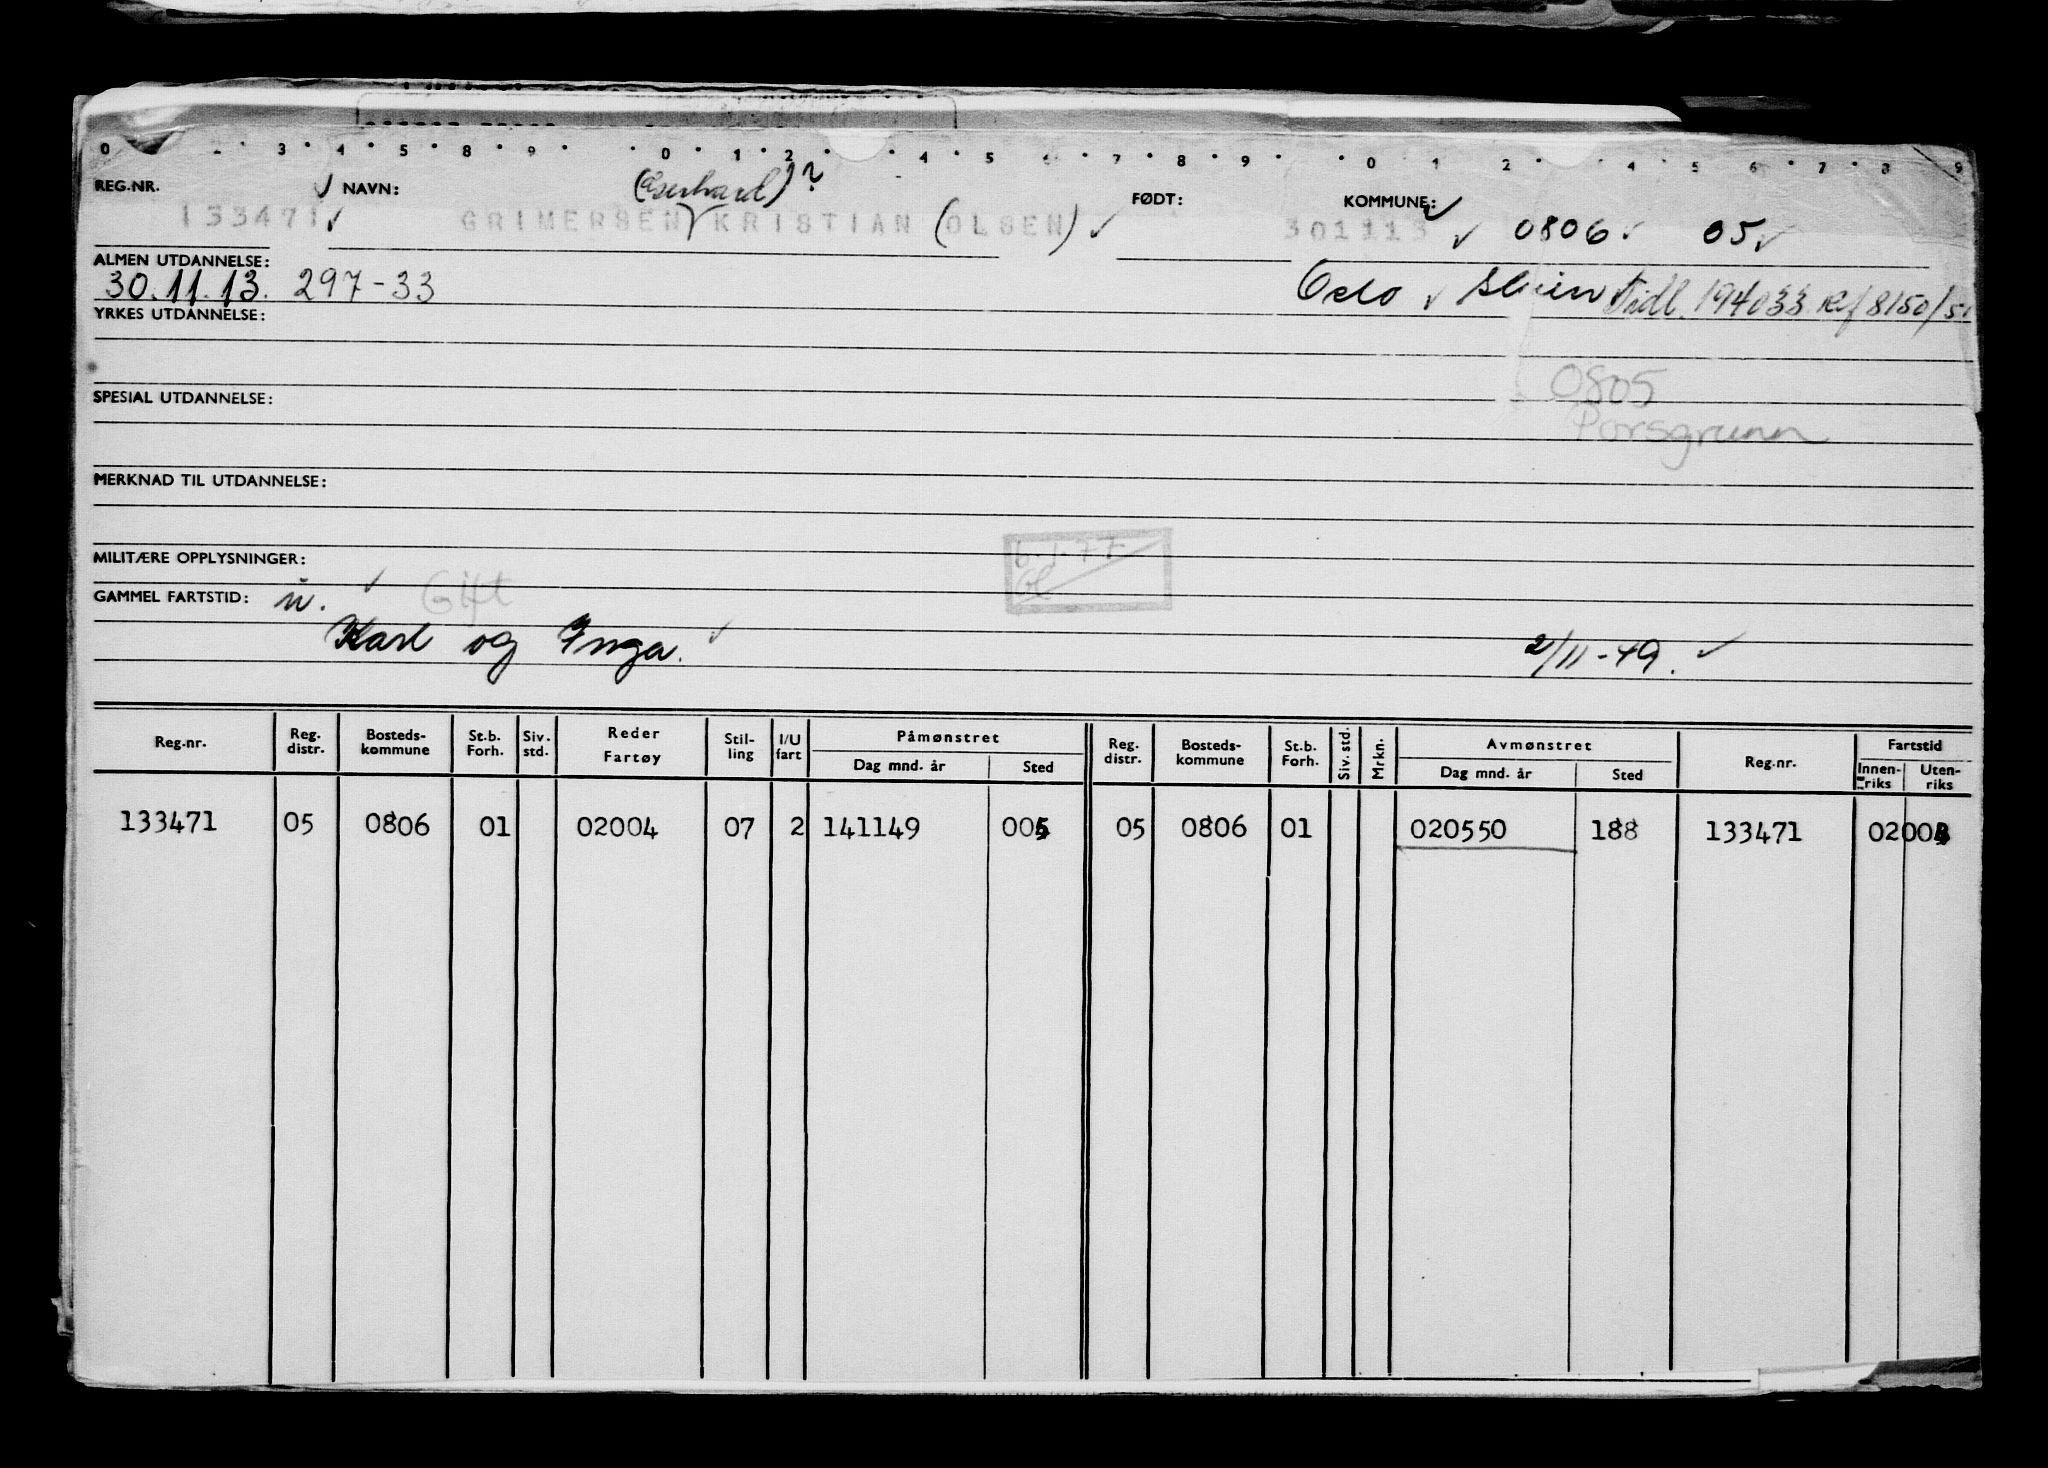 0 3 4 5 8 9 0 1 2 4 5 7 8 9 0 1 2 4 5 6 7 8 9
REG.NR. NAVN: (Gerhard)? FØDT: KOMMUNE:
133471 GRIMERSEN KRISTIAN (OLSEN) 301113 0806 05
ALMEN UTDANNELSE:
30.11.13. 297-33 Oslo Skien Tidl. 194033 Rf 8150/51
YRKES UTDANNELSE:
0805
SPESIAL UTDANNELSE:
Porsgrunn
MERKNAD TIL UTDANNELSE:
6.1.77
MILITÆRE OPPLYSNINGER:
GAMMEL FARTSTID: u. Gift
Karl og Inga. 2/11-49.
Reg.nr. Reg. distr. Bosteds-kommune St.b. Forh. Siv. std. Reder Fartøy Stil-ling I/U fart Påmønstret Dag mnd. år Sted Reg. distr. Bosteds-kommune St.b. Forh. Siv. std. Mrkn. Avmønstret Dag mnd. år Sted Reg.nr. Fartstid Innen-riks Uten-riks
133471 05 0806 01 02004 07 2 141149 005 05 0806 01 020550 188 133471 02003